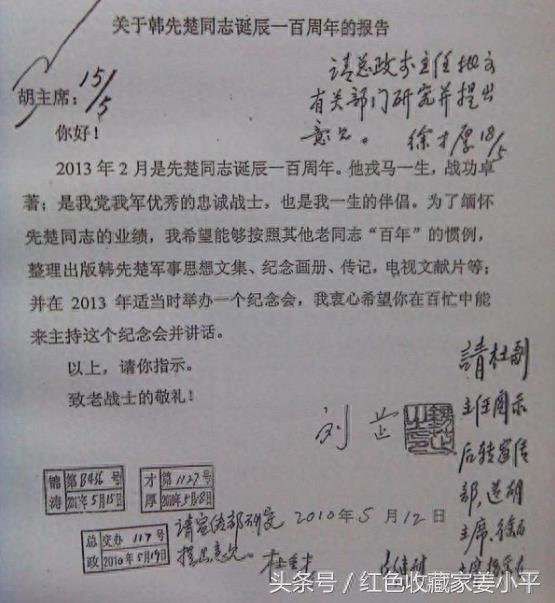 关于韩先楚同志诞辰一百周年的报告
15/5
胡主席：
请总政李主任批交
有关部门研究并提出
意见。 徐才厚 18/5
你好！
2013年2月是先楚同志诞辰一百周年。他戎马一生，战功卓
著；是我党我军优秀的忠诚战士，也是我一生的伴侣。为了缅怀
先楚同志的业绩，我希望能够按照其他老同志“百年”的惯例，
整理出版韩先楚军事思想文集、纪念画册、传记，电视文献片等；
并在 2013 年适当时举办一个纪念会，我衷心希望你在百忙中能
来主持这个纪念会并讲话。
以上，请你指示。
致老战士的敬礼！
刘芷
2010年5月12日
請杜副
主任阅示
后转宣传
部，送胡
主席、徐
锦涛 第B456号
5月15日
才厚 第1127号
5月18日
总政 交办 117号
2010年5月19日
请宣传部研究
提出意见。
头条号 / 红色收藏家姜小平